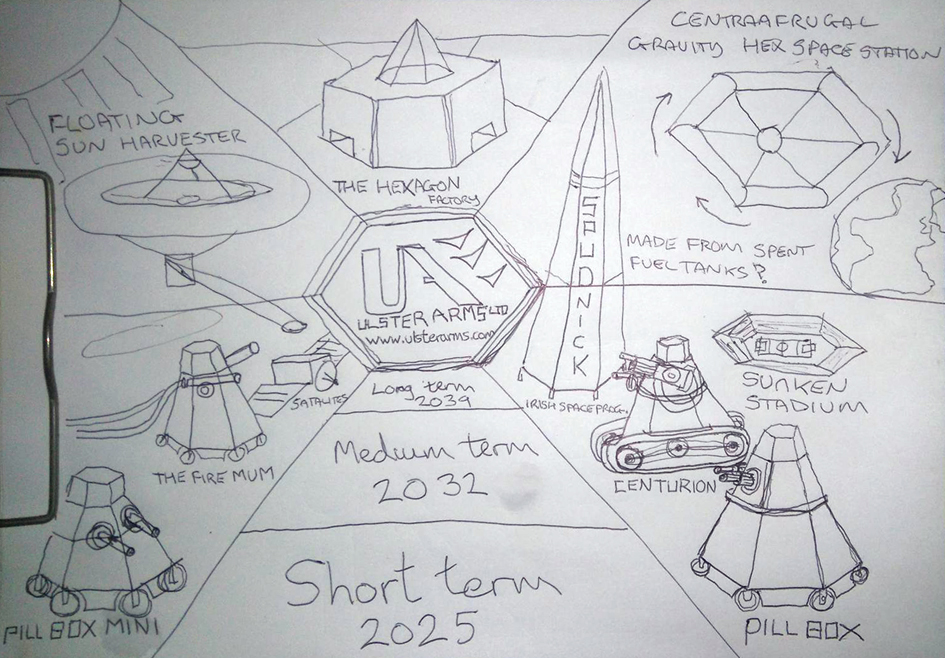 CENTRAAFRUGAL
GRAVITY HEX SPACE STATION
FLOATING
SUN HARVESTER
THE HEXAGON
FACTORY
SPUDNICK
MADE FROM SPENT
FUEL TANKS?
UA
ULSTER ARMS LTD
www.ulsterarms.com
Long term
2039
SATALITES
IRISH SPACE PROG.
SUNKEN
STADIUM
THE FIRE MUM
Medium term
2032
CENTURION
Short term
2025
PILL BOX MINI
PILL BOX